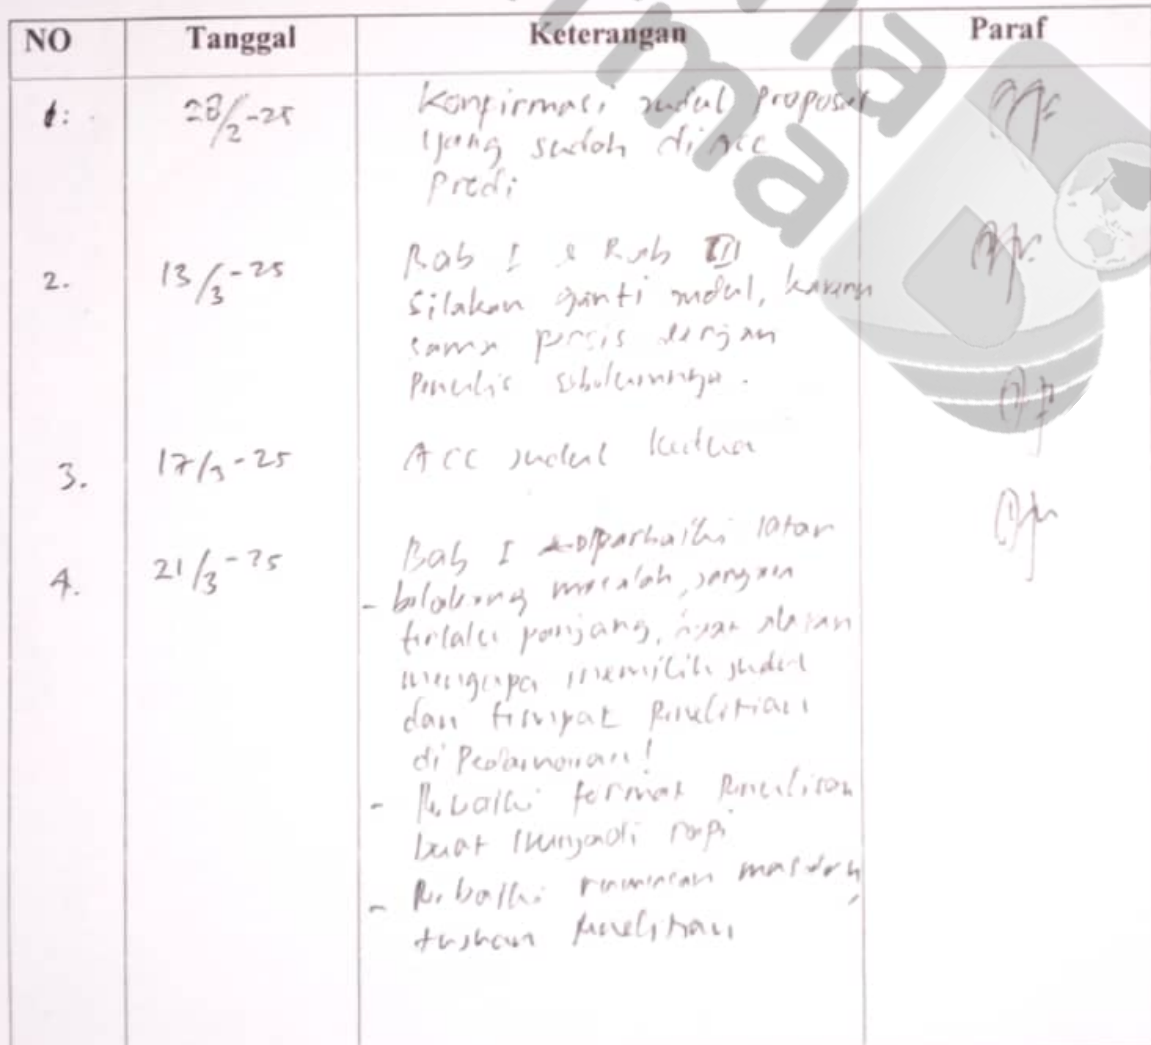 NO Tanggal Keterangan Paraf
1. 28/2-25 Konfirmasi judul proposal
yang sudah di acc
prodi
2. 13/3-25 Bab I & Bab III
Silakan ganti judul, karena
sama persis dengan
Penulis sebelumnya.
3. 17/3-25 ACC judul kedua
4. 21/3-25 Bab I perbaiki latar
- belakang masalah, jangan
terlalu panjang, alasan
mengapa memilih judul
dan tempat penelitian
di
- Perbaiki format penulisan
buat menjadi rapi
- Perbaiki rumusan masalah,
tujuan penelitian